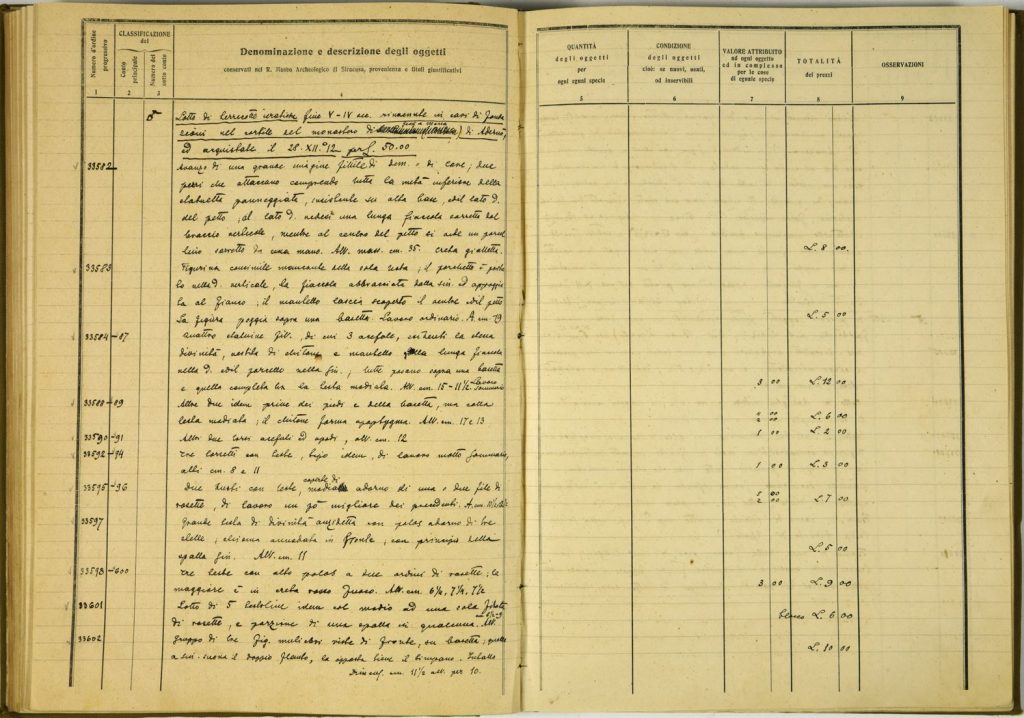 Numero d'ordine progressivo
CLASSIFICAZIONE
del
Conto principale
Numero del sotto conto
Denominazione e descrizione degli oggetti
conservati nel R. Museo Archeologico di Siracusa, provenienza e titoli giustificativi
1 2 3 4
QUANTITÀ
degli oggetti
per
ogni egual specie
5
CONDIZIONE
degli oggetti
cioè: se nuovi, usati,
od inservibili
6
VALORE ATTRIBUITO
ad ogni oggetto
ed in complesso
per le cose
di eguale specie
7
TOTALITÀ
dei prezzi
8
OSSERVAZIONI
9
Lotto di terrecotte ieratiche fine V-IV sec. rinvenute in casi di fonda
zioni nel cortile del monastero di di Adernò,
ed acquistate il 28.XII.°12 per £. 50.00
33582
Avanzo di una grande imagine fittile di dem. o di core; due
pezzi che attaccano comprendo tutta la metà inferiore della
statuetta panneggiata, insistente su alta base, ed il lato d.
del petto; al lato d. vedesi una lunga fiaccola corretta dal
braccio verticale, mentre al centro del petto si vede un porcel
lino corretto da una mano. Alt. mass. cm. 35. Creta gialletta.
L. 8 00.
33583
Figurina consimile mancante della sola testa; il porchetto è posto
lo nella d. verticale, la fiaccola abbracciata dalla sin. ed appoggia
ta al fianco; il mantello lascia scoperto il ventre ed il petto
La figura poggia sopra una basetta. Lavoro ordinario. A. cm. 19
L. 5 00.
33584-87
Quattro statuine fitt., di cui 3 acefale, esistenti la stessa
divinità, vestita di chitone e mantello colla lunga fiaccola
nella d. ed il porcello nella sin.; tutte posano sopra una basetta
e quella completa ha la testa modiata. Alt. cm. 15-11½ Lavoro sommario
3 00
L. 12 00
33588-89
Altre due idem prive dei piedi e della basetta, ma colla
testa modiata; il chitone forma apoptygma. Alt. cm. 17 e 13
L. 6 00
33590-91
Altri due torsi acefali ed apodi, alt. cm. 12
1 00
L. 2 00.
33592-94
Tre torsetti con teste, tipo idem, di lavoro molto sommario,
alti cm. 8 e 11
1 00
L. 3 00
33595-96
Due busti con teste, coperte di modio adorno di una o due file di
rosette, di lavoro un po' migliore dei precedenti.
L. 7 00
33597
Grande testa di divinità anzidetta con polos adorno di tre
stelle; chioma annodata in fronte; con principio della
spalla sin. Alt. cm. 11
L. 5 00
33598-600
Tre teste con alto polos a due ordini di rosette; la
maggiore è in creta rossa. Alt. cm. 6¼, 7¼, 7½
3 00
L. 9 00
33601
Lotto di 5 testoline idem col modio ad una sola fila
di rosette, e porzione di una spalla in qualcuna. Alt.
blocco L. 6 00
33602
Gruppo di tre fig. muliebri viste di fronte, su basetta; quella
a sin. suona il doppio flauto, la opposta tiene il timpano.
cm. 11½ alt. per 10.
L. 10 00